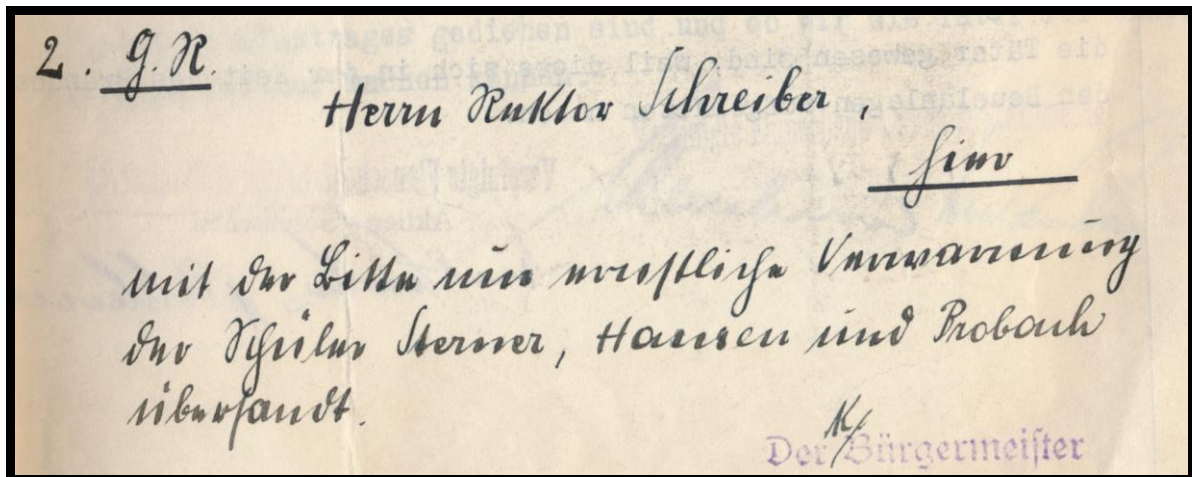 2. G. R.
Herrn Rektor Schreiber,
hier
mit der Bitte um ernstliche Verwarnung
der Schüler Sterner, Hansen und Probach
übersandt.
K/
Der Bürgermeister